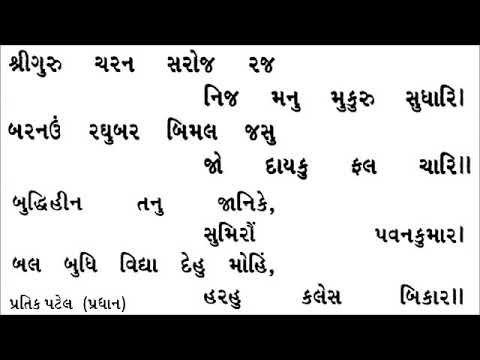 શ્રીગુરુ ચરન સરોજ રજ
નિજ મનુ મુકુરુ સુધારિ।
બરનઉં રઘુબર બિમલ જસુ
જો દાયકુ ફલ ચારિ॥
બુદ્ધિહીન તનુ જાનિકે,
સુમિરૌં પવનકુમાર।
બલ બુધિ વિદ્યા દેહુ મોહિં,
હરહુ કલેસ બિકાર॥
પ્રતિક પટેલ (પ્રધાન)